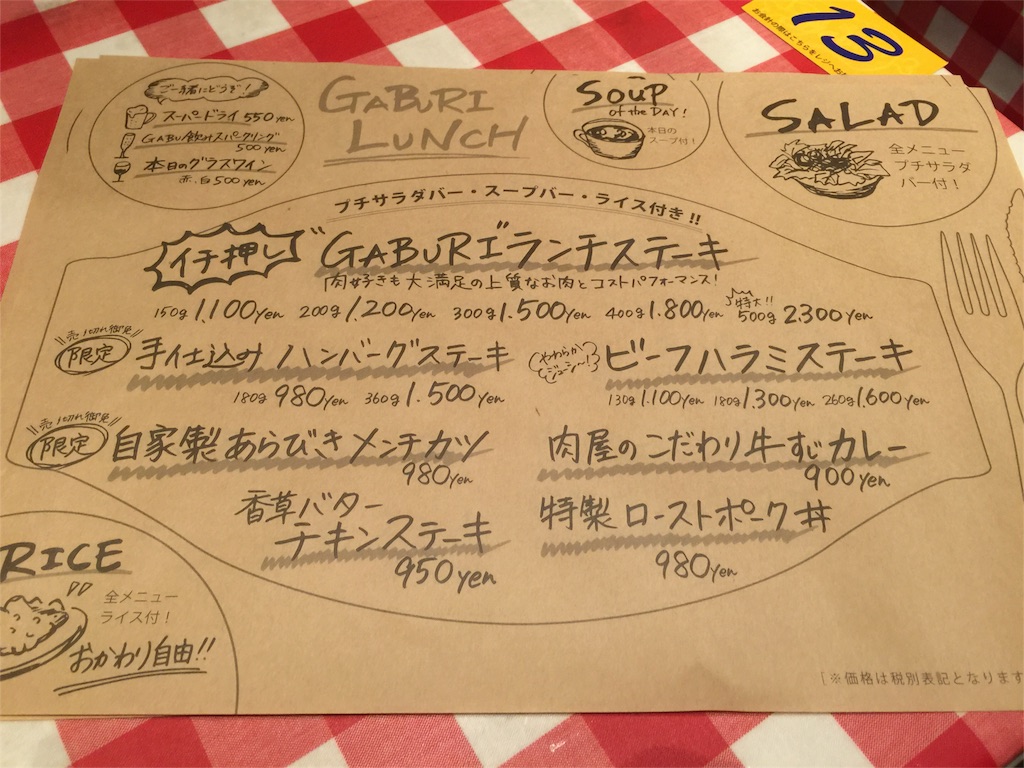 13
お会計の際はこちらをレジへお
ご一緒にどうぞ!
スーパードライ 550yen
GABU飲みスパークリング
500yen
本日のグラスワイン
赤、白 500yen
GABURI
LUNCH
SOUP
of the DAY!
本日の
スープ付!
SALAD
全メニュー
プチサラダ
バー付!
プチサラダバー・スープバー・ライス付き!!
イチ押し "GABURI"ランチステーキ
肉好きも大満足の上質なお肉とコストパフォーマンス!
150g 1,100yen 200g 1,200yen 300g 1,500yen 400g 1,800yen 特大!! 500g 2,300yen
売り切れ御免
限定 手仕込みハンバーグステーキ
180g 980yen 360g 1,500yen
やわらかジューシー!! ビーフハラミステーキ
130g 1,100yen 180g 1,300yen 260g 1,600yen
売り切れ御免
限定 自家製あらびきメンチカツ
980yen
肉屋のこだわり牛すじカレー
900yen
香草バター
チキンステーキ
950yen
特製ローストポーク丼
980yen
RICE
全メニュー
ライス付!
おかわり自由!!
[※価格は税別表記となります